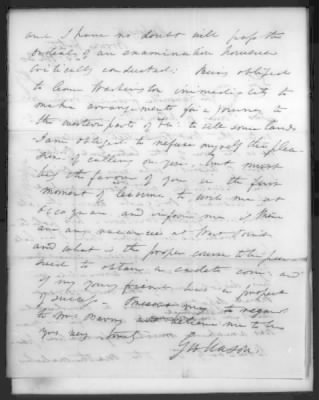 and I have no doubt will pass the
ordeal of an examination however
critically conducted: Being obliged
to leave Washington immediately to
make arrangements for a journey to
the western parts of Va: to sell some lands
I am obliged to refuse myself the plea-
sure of calling on you - but must
beg the favour of you in the first
moment of leisure to write me at
Occoquan and inform me is there
are any vacancies at West Point
and what is the proper course to be pur-
sued to obtain a cadets com: and
if my young friend has a prospect
of success - Present my regards
to Mrs and believe me to be
yrs very truly
Mason